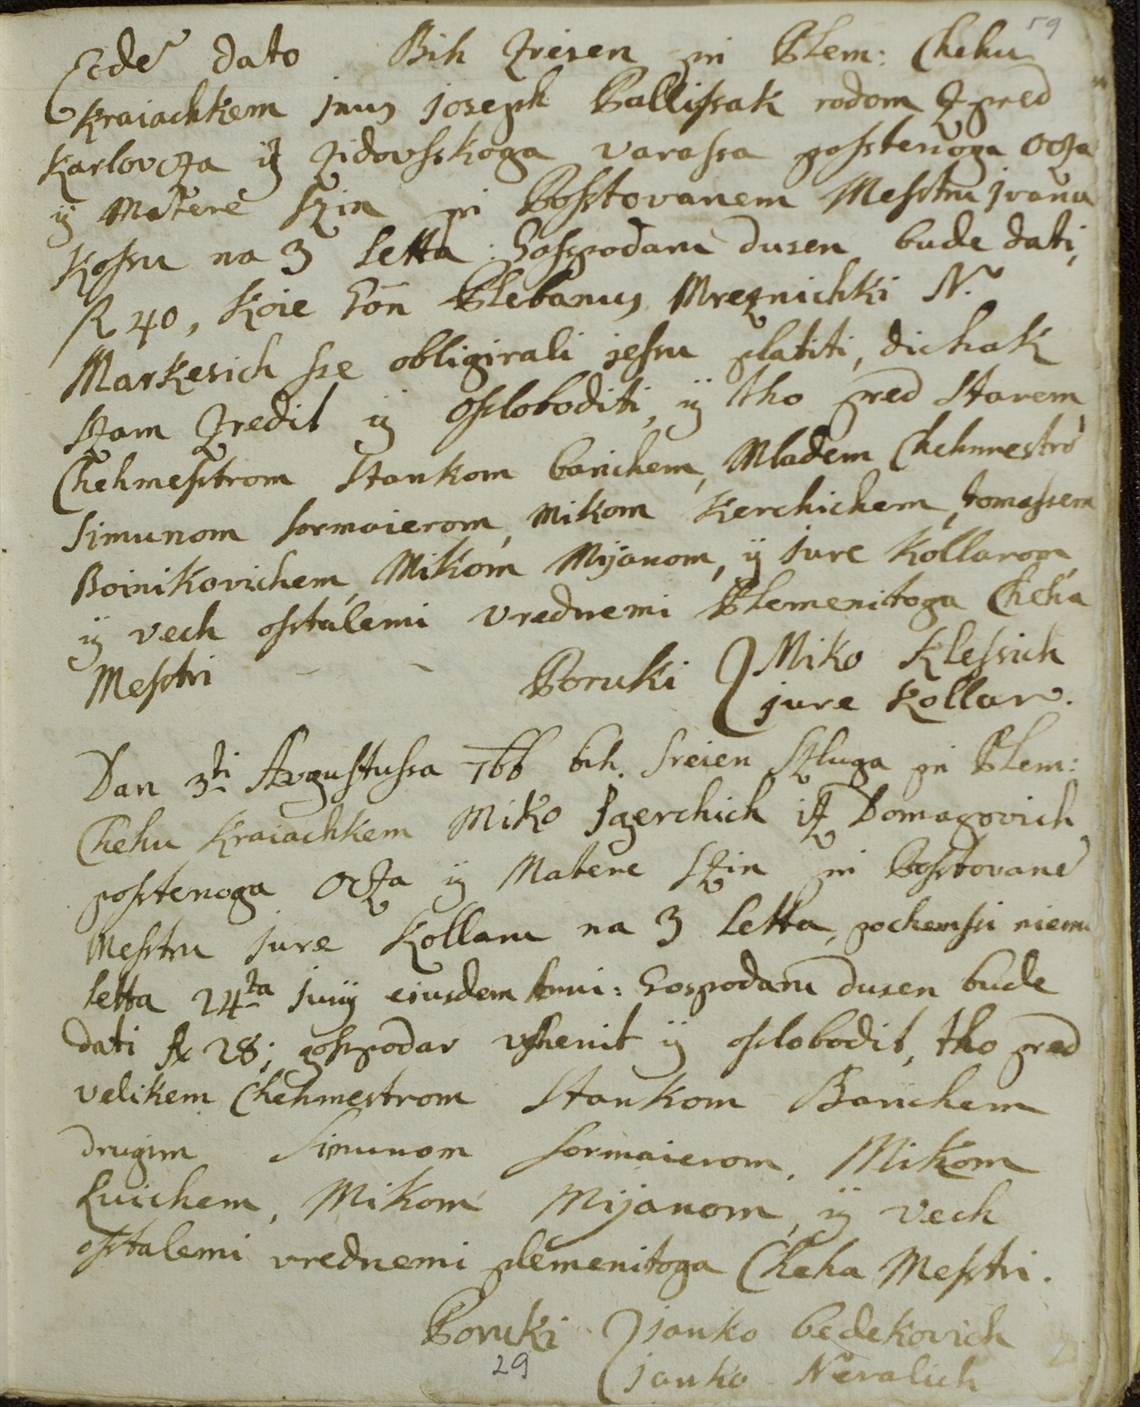 59
Eode dato Bih Zrisen pri Plem: Chehu
Kraiachkem Inus Joseph Ballissak rodom Z pred
Karlovcza iz Zidovsskoga varassa posstenoga Ocza
ÿ Matere Szin pri Posstovanem Messtru Ivanu
Kossu na 3 Letta: Gosspodaru dusen bude dati,
R 40, Koie Gōn Plebanus Mreznichki N.
Markesich sze obligirali jessu platiti, dichak
szam Zredil ÿ Osloboditi, ÿ tho pred Starem
Chehmesstrom Stankom barichem, Mladem Chehmestrō
Simunom sormaierom, Mikom Kerchichem, Tomassem
Boinikovichem, Mikom Mijanom, ÿ Jure Kollarom,
ÿ vech osstalemi vrednemi Plemenitoga Cheha
Messtri Poruki Miko Klessich
Jure Kollar.
Dan 3ti Augustussa 766 bih. Sreien Szluga pri Plem:
Chehu Kraiachkem Miko Igerchich iz Domagovich
posstenoga Ocza ÿ Matere Szin pri Posstovane
Messtru Jure Kollaru na 3 Letta, pochemssi niemu
letta 24ta Junÿ eiusdem Anni: Gospodaru dusen bude
dati R 28; gosspodar vchenit ÿ oslobodit, tho pred
velikem Chehmestrom Stankom Barichem
drugim Simunom sormaierom, Mikom
Luichem, Mikom Mijanom, ÿ vech
osstalemi vrednemi plemenitoga Cheha Messtri.
Poruki Janko bedekovich
Janko Neralich
29